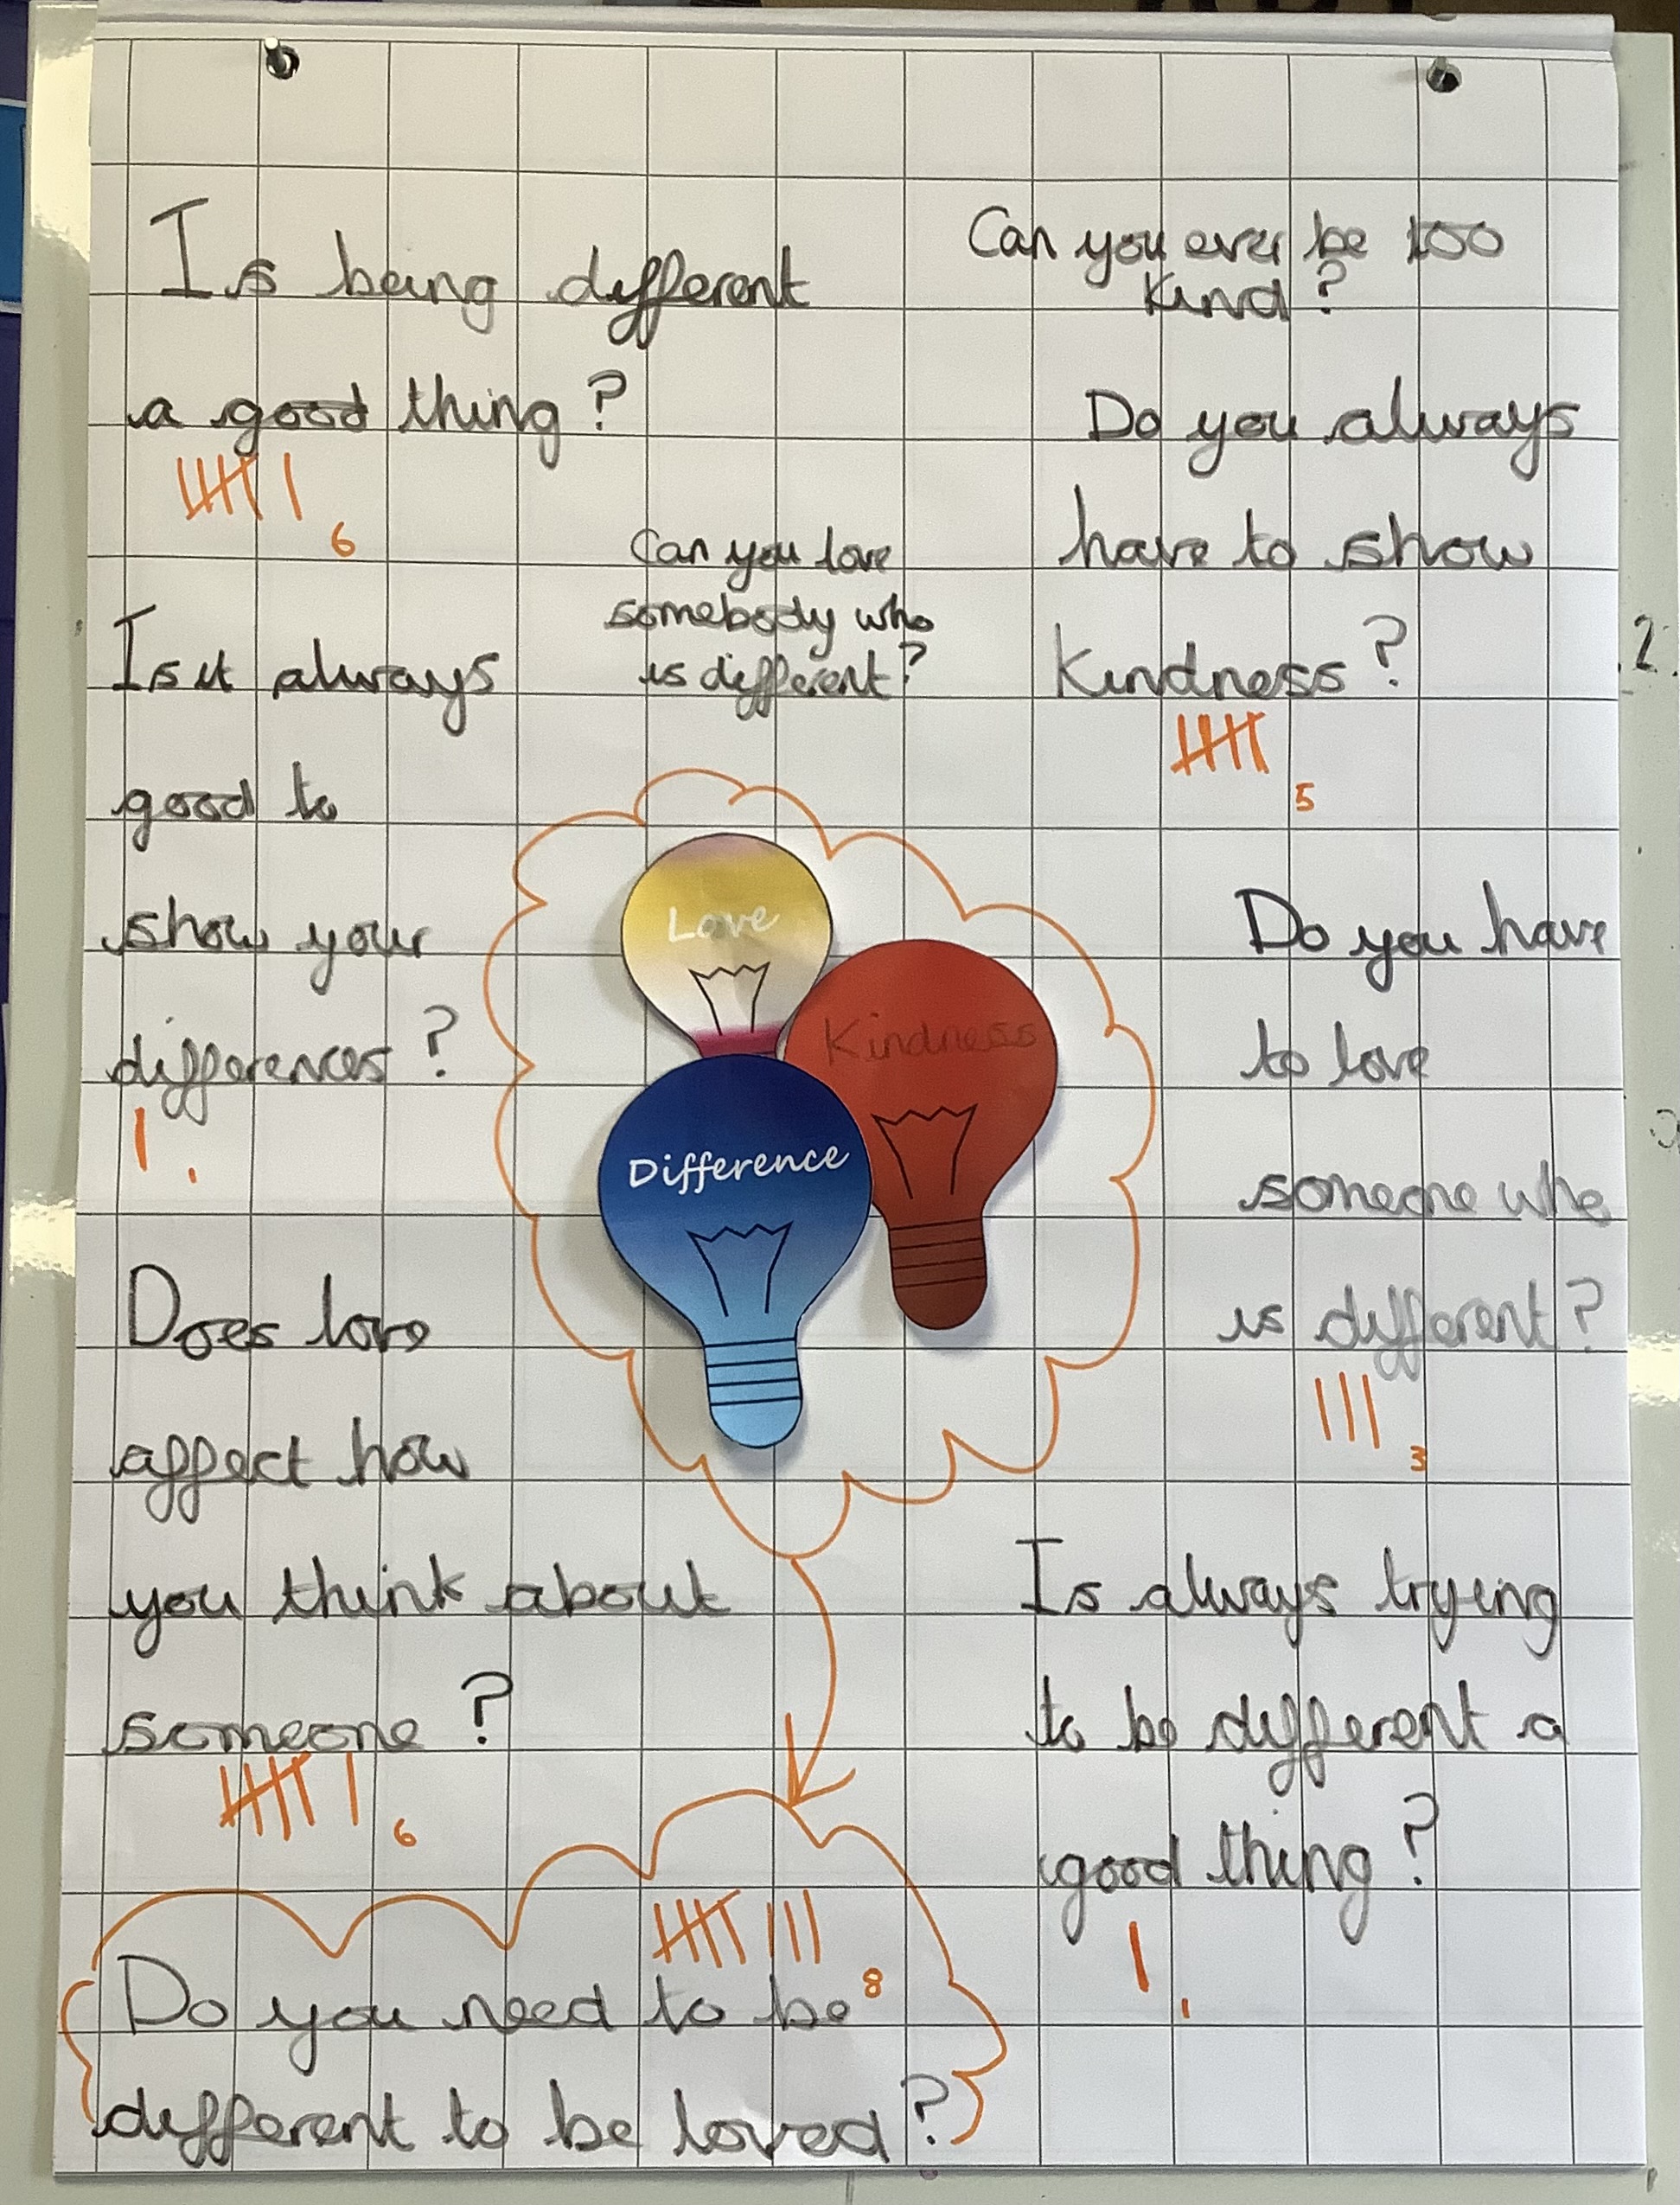 Is being different
a good thing?
6
Can you ever be too
kind?
Do you always
have to show
kindness?
5
Can you love
somebody who
is different?
Is it always
good to
show your
differences?
1
Love
Kindness
Difference
Do you have
to love
someone who
is different?
3
Does love
affect how
you think about
someone?
6
Is always trying
to be different a
good thing?
1
8
Do you need to be
different to be loved?
2.